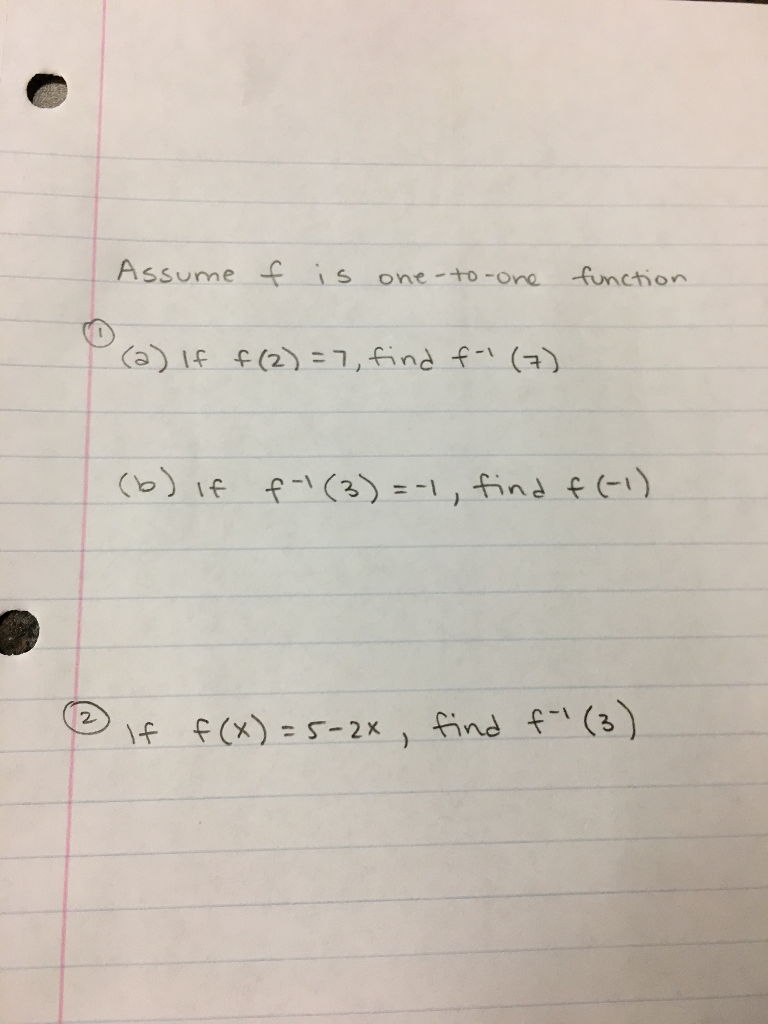 Assume f is one-to-one function
① (a) If f(2) = 7, find f⁻¹ (7)
(b) If f⁻¹(3) = -1, find f(-1)
② If f(x) = 5-2x, find f⁻¹(3)